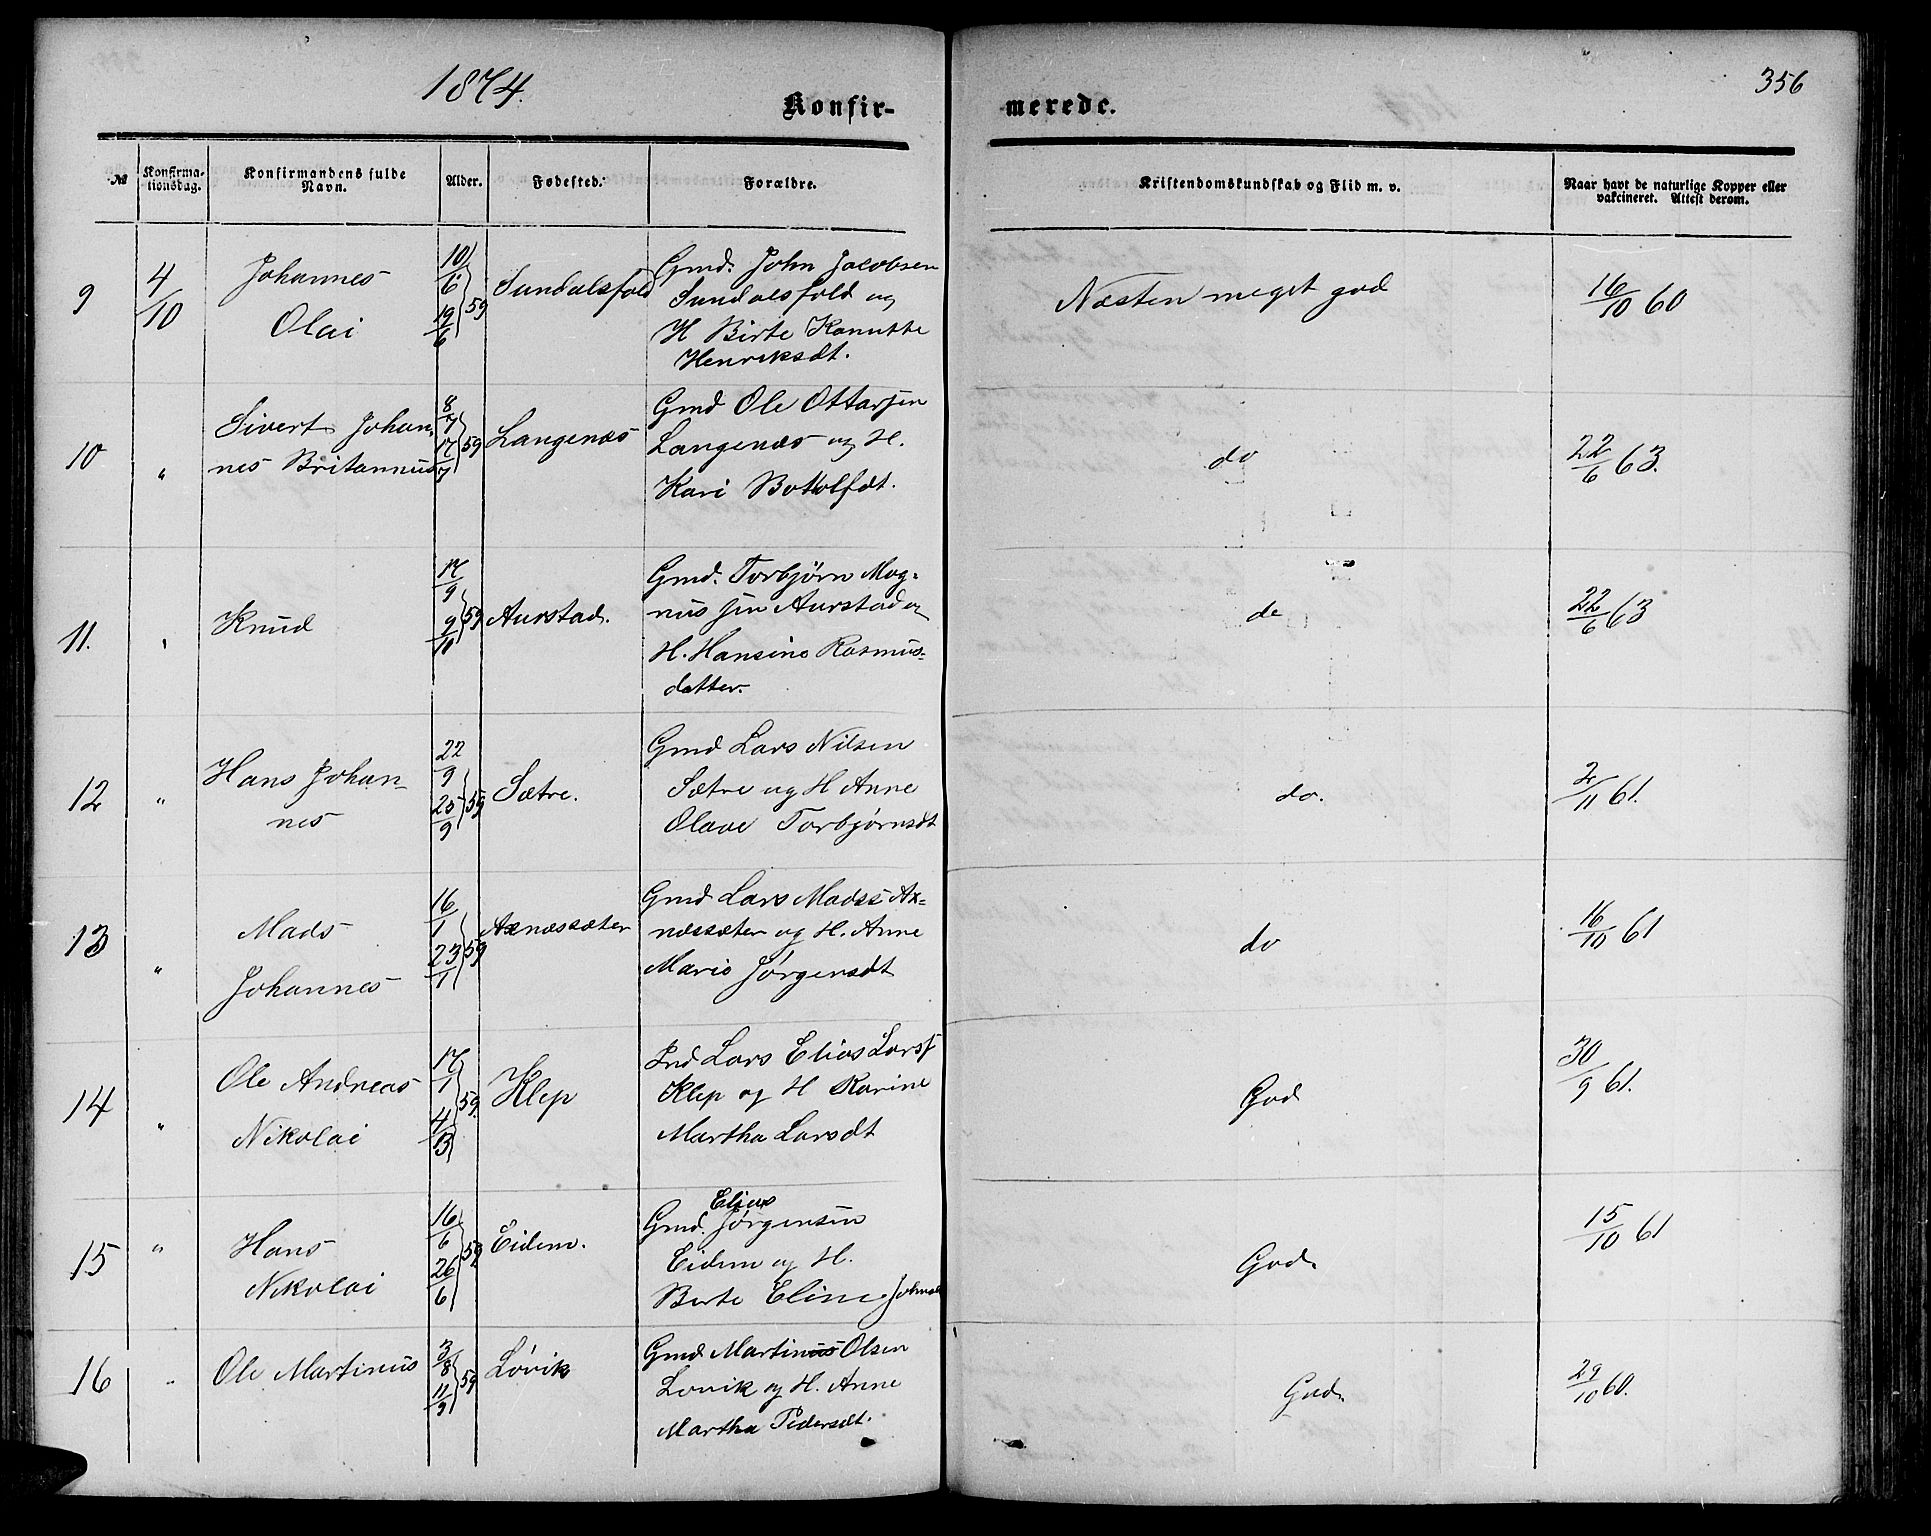 1874.
Konfir-
merede.
356
№
Konfirma-
tionsdag.
Konfirmandens fulde
Navn.
Alder.
Fødested.
Forældre.
Kristendomskundskab og Flid m. v.
Naar havt de naturlige Kopper eller
vakcineret. Attest derom.
9
4/10
Johannes
Olai
10/6 19/6 } 59
Sundalsfold
Gmd. John Jacobsen
Sundalsfold og
H Birte Kanutte
Henriksdt.
Næsten meget god
16/10 60
10
"
Sivert Johan-
nes Britannus
8/7 17/7 } 59
Langenæs
Gmd Ole Ottarsen
Langenæs og H.
Kari Bottolfdt.
do
22/6 63.
11.
"
Knud
17/9 9/10 } 59
Aurstad.
Gmd. Torbjørn Mag-
nussen Aurstad og
H. Hansine Rasmus-
datter.
do
22/6 63
12
"
Hans Johan-
nes
22/9 25/9 } 59
Sætre.
Gmd Lars Nilsen
Sætre og H Anne
Olave Torbjørnsdt
do.
2/11 61.
13
"
Mads
Johannes
16/1 23/1 } 59
Axnæssæter
Gmd Lars Madss Ax-
næssæter og H. Anne
Marie Jørgensdt
do
16/10 61
14
"
Ole Andreas
Nikolai
17/1 4/13 } 59.
Klep
Ind Lars Elias Larss
Klep og H Karine
Martha Larsdt
God
30/9 61.
15
"
Hans
Nikolai
16/6 26/6 } 59
Eidem.
Elias
Gmd. Jørgensen
Eidem og H.
Berte Eline Johnsd
God.
15/10 61
16
"
Ole Martinus
3/8 11/9 } 59
Lövik
Gmd Martinus Olsen
Lovik og H. Anne
Martha Pedersdt.
God.
29/10 60.